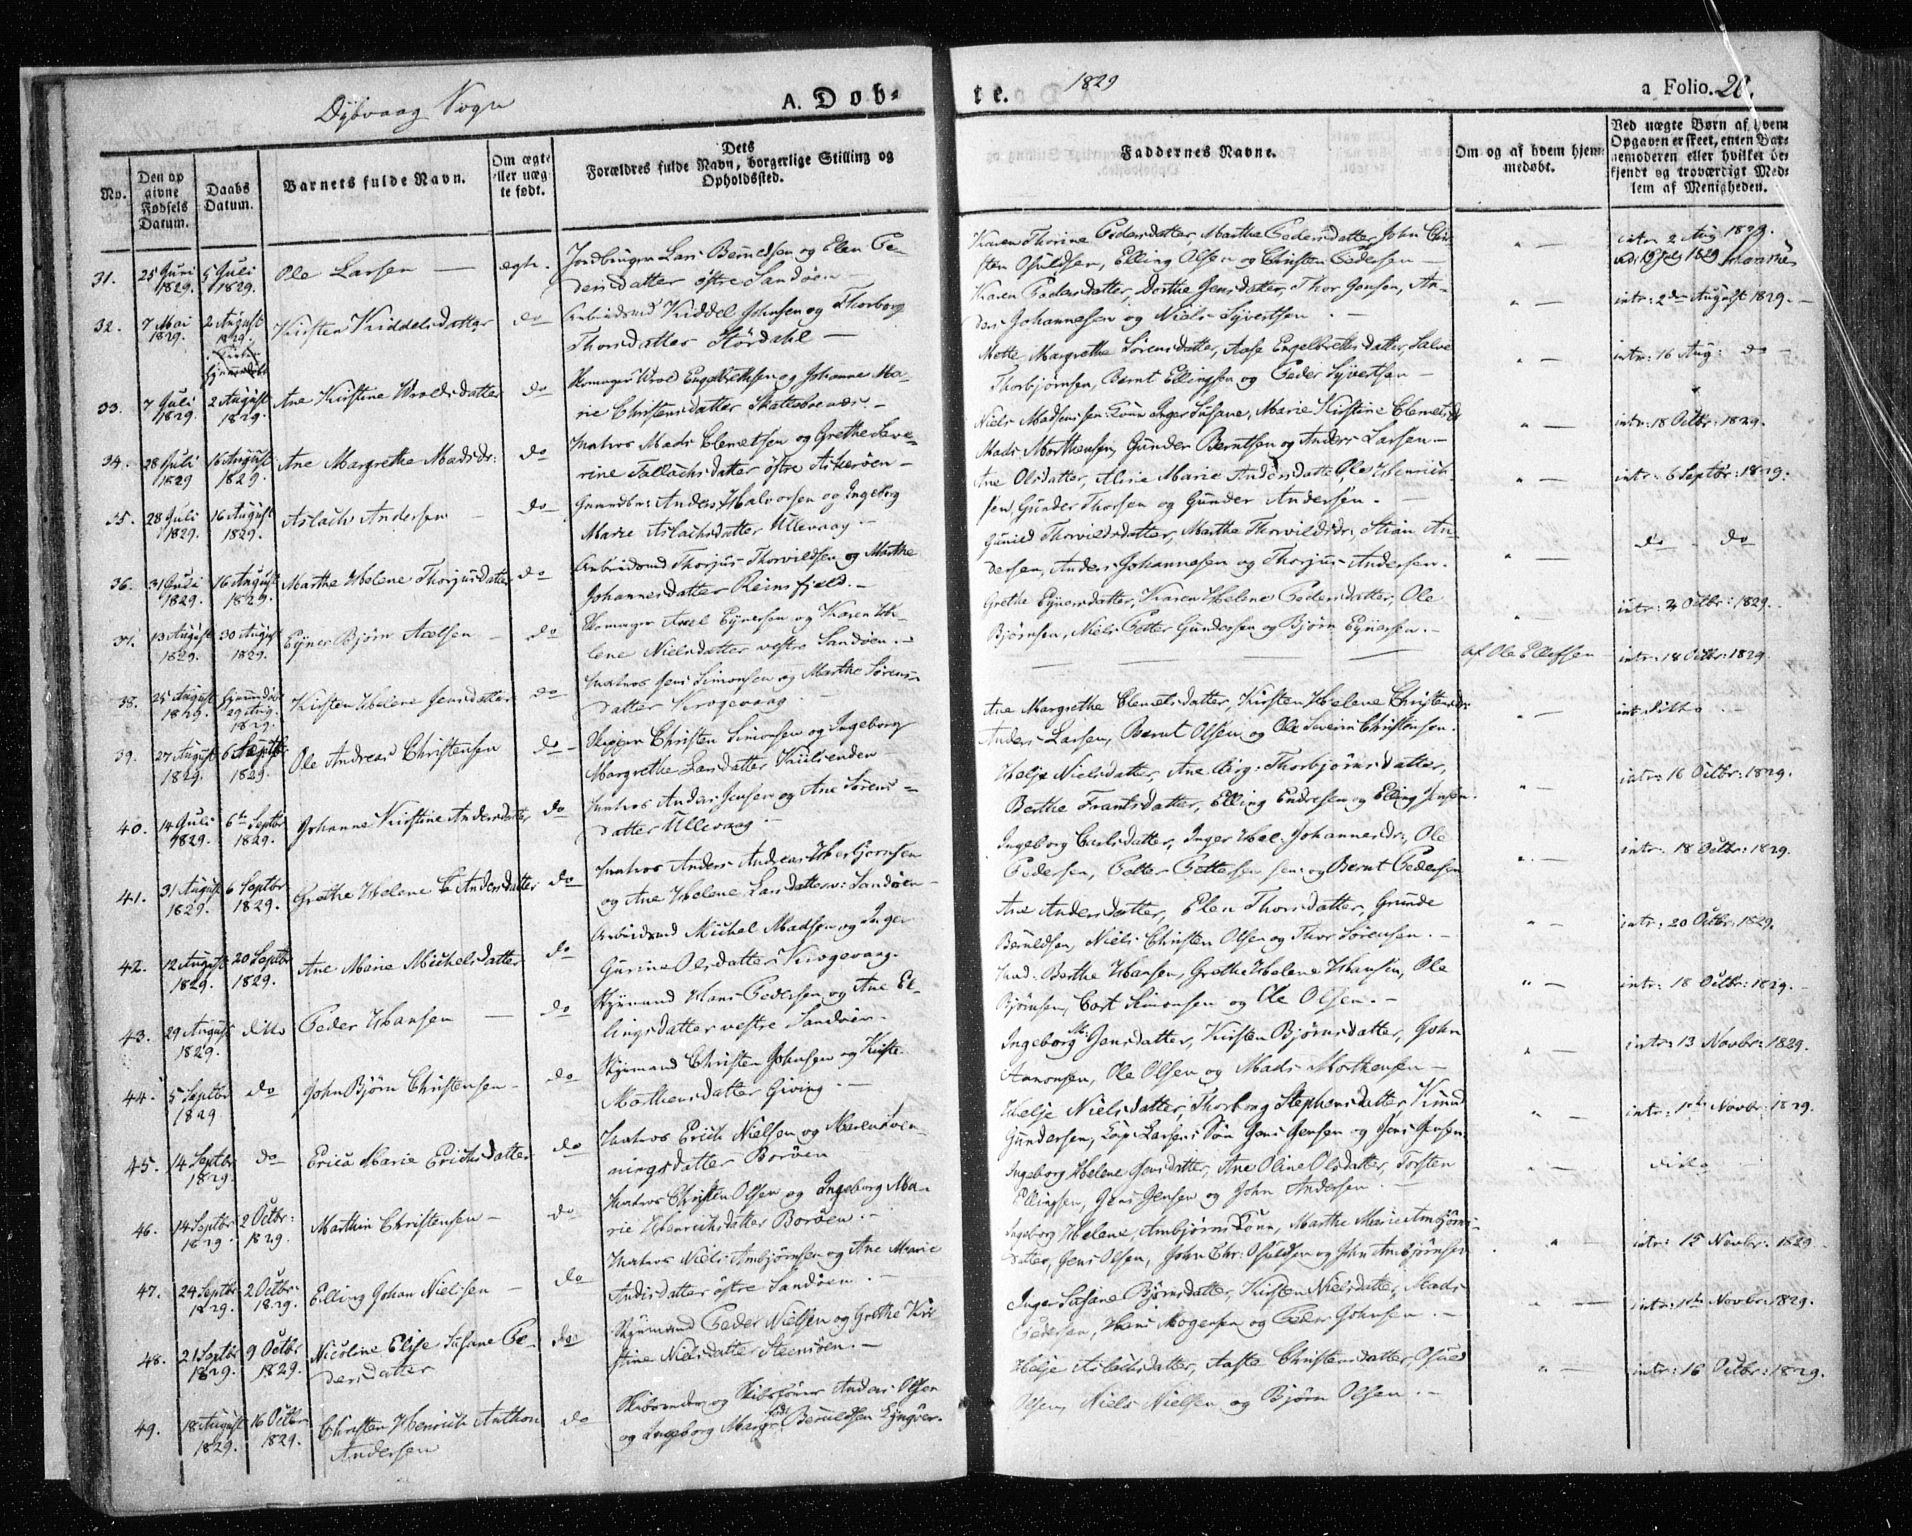 Dybvaag Sogn
A. Dob-
te.
1829
a Folio. 20.
No.
Den op
givne
Fødsels
Datum.
Daabs
Datum.
Barnets fulde Navn.
Om ægte
eller uæg
te født.
Dets
Forældres fulde Navn, borgerlige Stilling og
Opholdssted.
Faddernes Navne.
Om og af hvem hjem-
medøbt.
Ved uægte Børn af hvem
Opgaven er skeet, enten Bar-
nemoderen eller hvilket be-
kjendt og troværdigt Med-
lem af Menigheden.
31. 25 Juni 1829. 5 Juli 1829. Ole Larsen — ægte.
Jordbruger Lars Berntsen og Elen Pe-
dersdatter østre Sandøen
Karen Thorine Pedersdatter, Marthe Pedersdatter, John Chri-
sten Osuldsen, Elling Olsen og Christen Pedersen —
intr. 2 Aug 1829.
32. 7 Mai 1829. 2 August 1829. Kirsten Kiddelsdatter do
Arbeidsmd Kiddel Johnsen og Thorborg
Thorsdatter Hørdahl —
Karen Pedersdatter, Dorthe Jensdatter, Thor Jensen, An-
ders Johannesen og Niels Syvertsen.
intr: 2den August 1829. —
33. 7 Juli 1829. 2 August 1829. Ane Kirstine Wroldsdatter do
Skomager Wrol Engebrethsen og Johanne Ma-
rie Christensdatter
Mette Margrethe Sørensdatter, Aase Engelbrethsdatter, Salve
Thorbjørnsen, Bernt Ellingsen og Peder Syvertsen —
intr: 16 Aug: do —
34. 28 Juli 1829 16 August 1829. Ane Margrethe Madsdr: do
Matros Mads Clemetsen og Grethe Seve-
rine Tallachsdatter østre Askerøen —
Niels Madsens Kone Inger Susane, Marie Kirstine Clemetsdr
Mads Morthensen, Gunder Berntsen og Anders Larsen —
intr: 18 Octbr: 1829.
35. 28 Juli 1829. 16 August 1829. Aslach Andersen — do
Anders Halvorsen og Ingeborg
Marie Aslachsdatter Ullevaag —
Ane Olsdatter, Aline Marie Andersdatter, Ole Henrich-
sen, Gunder Thorsen og Gunder Andersen. —
intr: 6 Septbr: 1829.
36. 31 Juli 1829. 16 August 1829. Marthe Helene Thorjusdatter do
Arbeidsmd Thorjus Thorvildsen og Marthe
Johannesdatter Reinsfjeld. —
Gunild Thorvildsdatter, Marthe Thorvildsdr, Stian An-
dersen, Anders Johannesen og Thorjus Andersen.
do — do
37. 13 August 1829. 30 August 1829. Ejner Bjørn Axelsen — do
Skomager Axel Ejnersen og Karen He-
lene Nielsdatter vestre Sandøen. —
Grethe Ejnersdatter, Karen Helene Pedersdatter, Ole
Bjørnsen, Niels Petter Gundersen og Bjørn Ejnersen. —
intr: 4 Octbr: 1829.
38. 25 August 1829. hjemmedøbt 29 Aug. 1829. Kirsten Helene Jensdatter do
Matros Jens Simonsen og Marthe Sørens-
datter Krogevaag
af Ole Ellefsen
intr: 18 Octbr: 1829.
39. 27 August 1829. 6 Septbr 1829. Ole Andreas Christensen do —
Skipper Christen Simonsen og Ingeborg
Margrethe Larsdatter
Ane Margrethe Clemetsdatter, Kirsten Helene Christensdr:
Anders Larsen, Bernt Olsen og Ole Severin Christensen.
intr: ditto
40. 14 Juli 1829. 6te Septbr 1829. Johanne Kirstine Andersdatter do
Matros Anders Jensen og Ane Sørens-
datter Ullevaag —
Helje Nielsdatter, Ane Birg: Thorbjørnsdatter,
Berthe Frantsdatter, Elling Endresen og Elling Jensen.
intr: 18 Octbr: 1829.
41. 31 August 1829. 6 Septbr 1829. Grethe Helene Andersdatter do
Matros Anders Andreas Herbjørnsen
og Ane Helene Larsdatter v: Sandøen —
Ingeborg Carlsdatter, Inger Hel: Johannesdr:, Ole
Pedersen, Petter Pettersen sen: og Bernt Pedersen
intr: 18 Octbr: 1829.
42. 12 August 1829. 20 Septbr 1829. Ane Marie Michelsdatter do
Arbeidsmd Michel Madsen og Inger
Gurine Olsdatter Krogevaag.
Ane Andersdatter, Elen Thorsdatter, Grunde
Beruldsen, Niels Christen Olsen og Thor Sørensen. —
intr: 20 Octbr: 1829.
43. 29 August 1829. ditto Peder Hansen — do
Styrmand Hans Pedersen og Ane El-
lingsdatter vestre Sandøen.
Berthe Hansen, Grethe Helene Hansen, Ole
Bjørnsen, Cort Simonsen og Ole Olsen. —
intr: 18 Octbr: 1829.
44. 5 Septbr 1829. do John Bjørn Christensen — do
Styrmand Christen Johnsen og Kirste
Morthensdatter Giving —
Ingeborg M: Jensdatter, Kirsten Bjørnsdatter, John
Aanonsen, Ole Olsen og Mads Morthensen —
intr: 13 Novbr: 1829.
45. 14 Septbr 1829. do Erica Marie Erichsdatter do
Matros Erich Nielsen og Maren Sven-
ningsdatter Borøen
Helje Nielsdatter, Thorborg Stephensdatter, Knud
Gundersen, Søn Jens Jensen og Jens Jensen
intr: 1ste Novbr: 1829.
46. 14 Septbr 1829. 2 Octbr: 1829. Marthin Christensen — do
Matros Christen Olsen og Ingeborg Ma-
rie Henrichsdatter Borøen —
Ingeborg Helene Jensdatter, Ane Oline Olsdatter, Torsten
Ellingsen, Jens Jensen og John Andersen —
ditto
47. 24 Septbr 1829. 2 Octbr: 1829. Elling Johan Nielsen — do
Matros Niels Ambjørnsen og Ane Marie
datter østre Sandøen. —
Ingeborg Helene, Ambjørns Kone, Marthe Marie Ambjørns-
datter, Jens Olsen, John Chr: Osuldsen og John Ambjørnsen
intr: 15 Novbr: 1829
48. 21 Septbr 1829. 9 Octbr 1829. Nicoline Elise Susane Pe-
dersdatter do
Styrmand Peder Nielsen og Grethe Kir-
stine Nielsdatter Steensøen. —
Inger Susane Bjørnsdatter, Kirsten Nielsdatter, Mads
Pedersen, Hans Mogensen og Peder Johnsen —
intr: 1ste Novbr: 1829.
49. 18 August 1829. 16 Octbr 1829. Christen Henrich Anthon
Andersen do
Skibsreder og Skibsfører Anders Olsen
og Ingeborg Margr: født Beruldsen
Helje Aslachsdatter, Aaste Christensdatter, Osuld
Olsen, Niels Nielsen og Bjørn Olsen. —
intr: 16 Octbr: 1829.